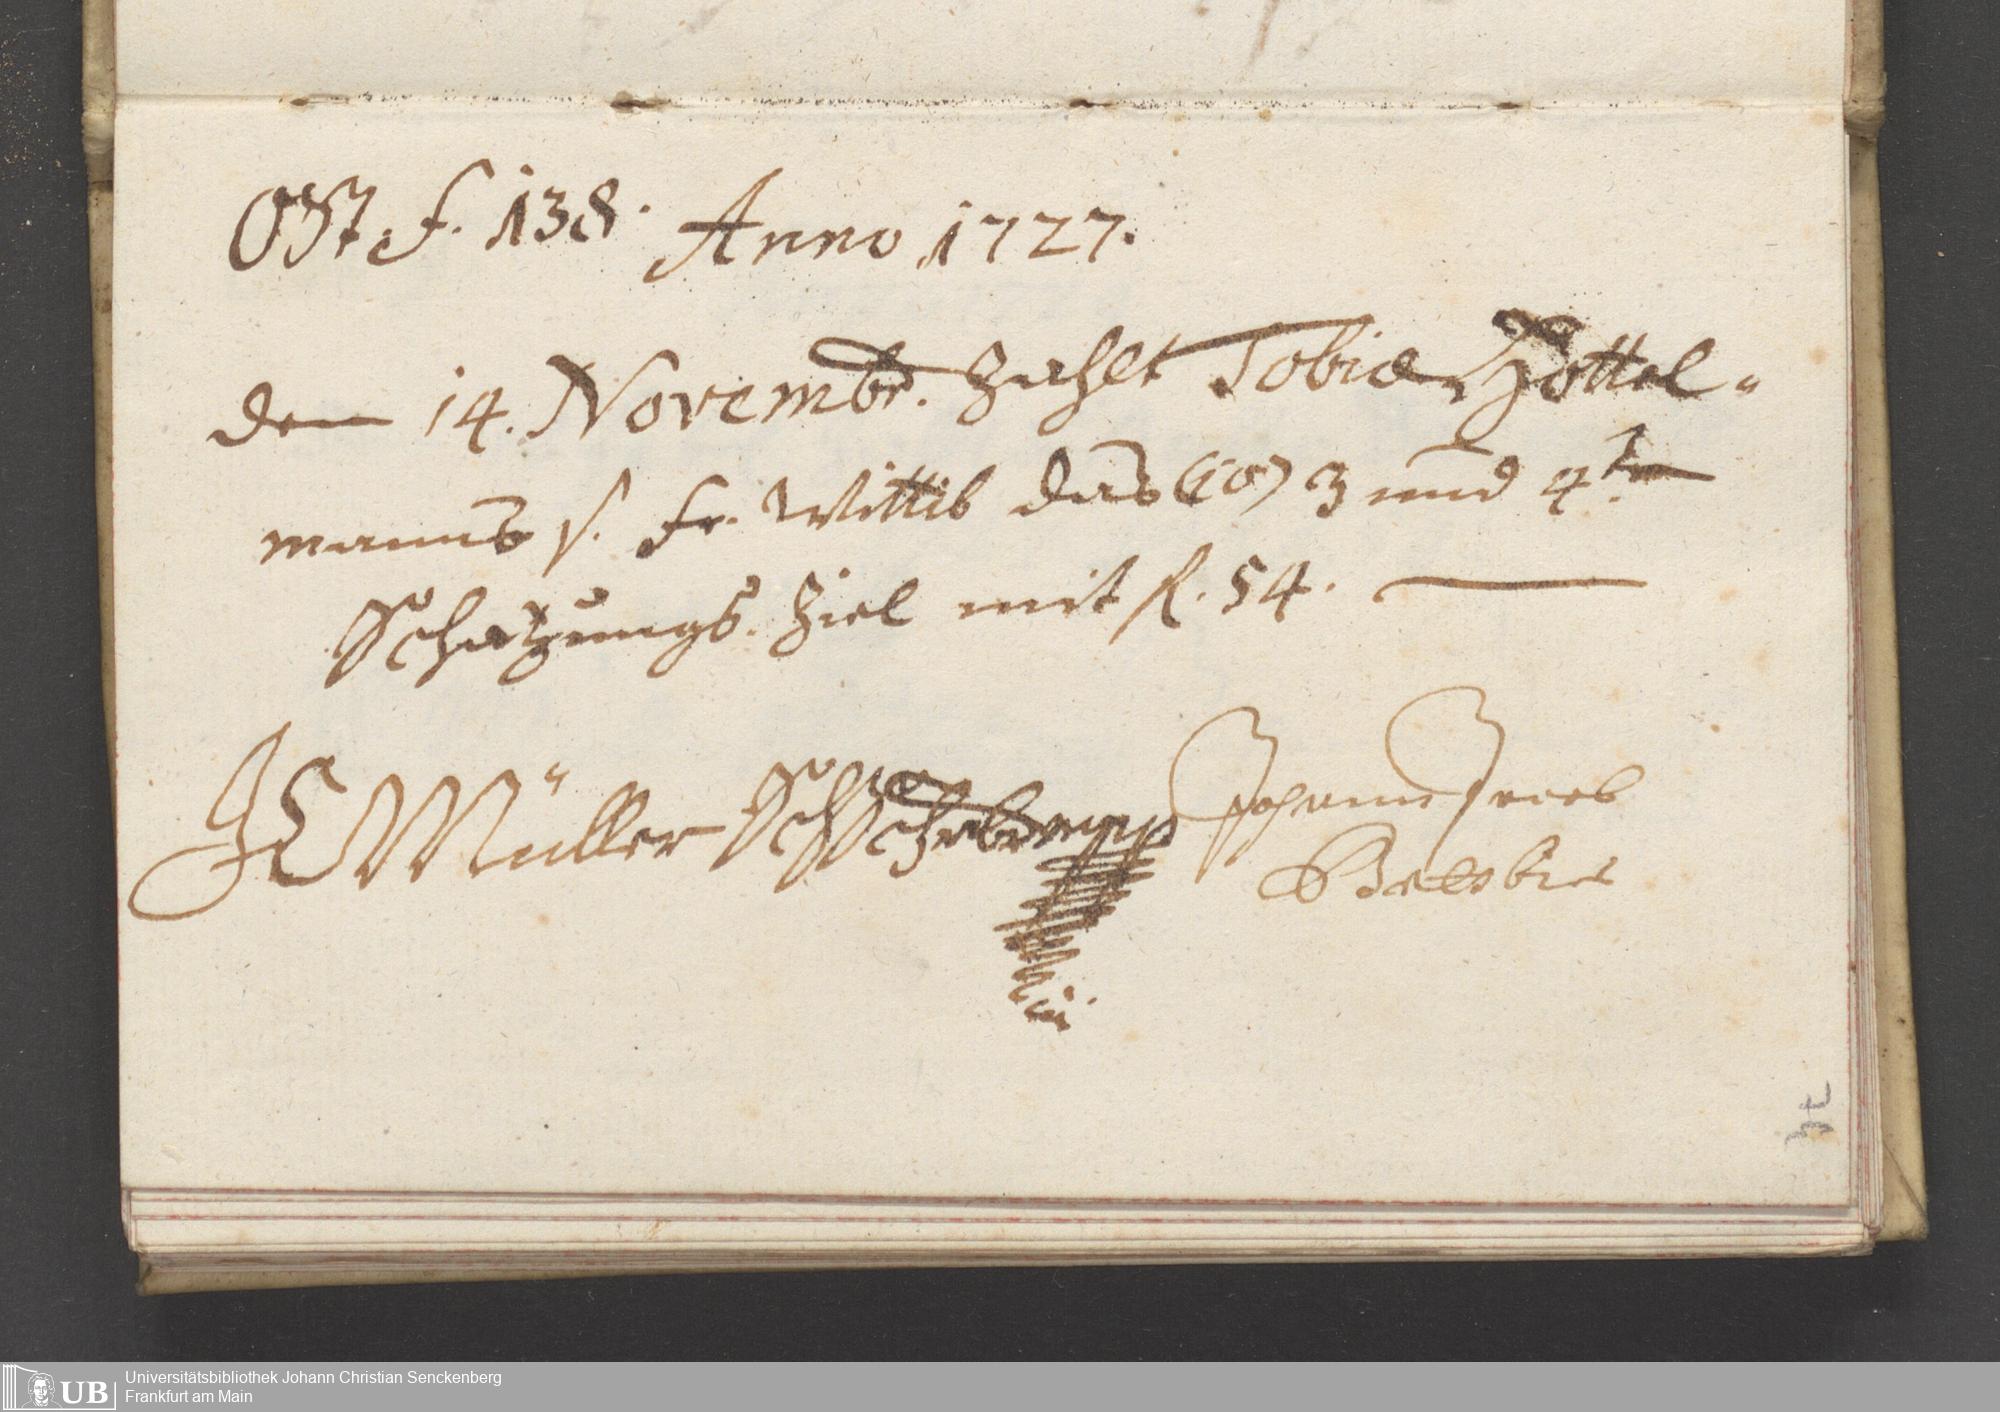 f. 138. Anno 1727.
den 14. Novembr. Zahlt Tobiae Hottel-
manns s. Fr. Wittib das (10) 3 und 4te
Schatzungs Ziel mit f. 54.
JC Müller Johann Jacob
32
Universitätsbibliothek Johann Christian Senckenberg
Frankfurt am Main
UB